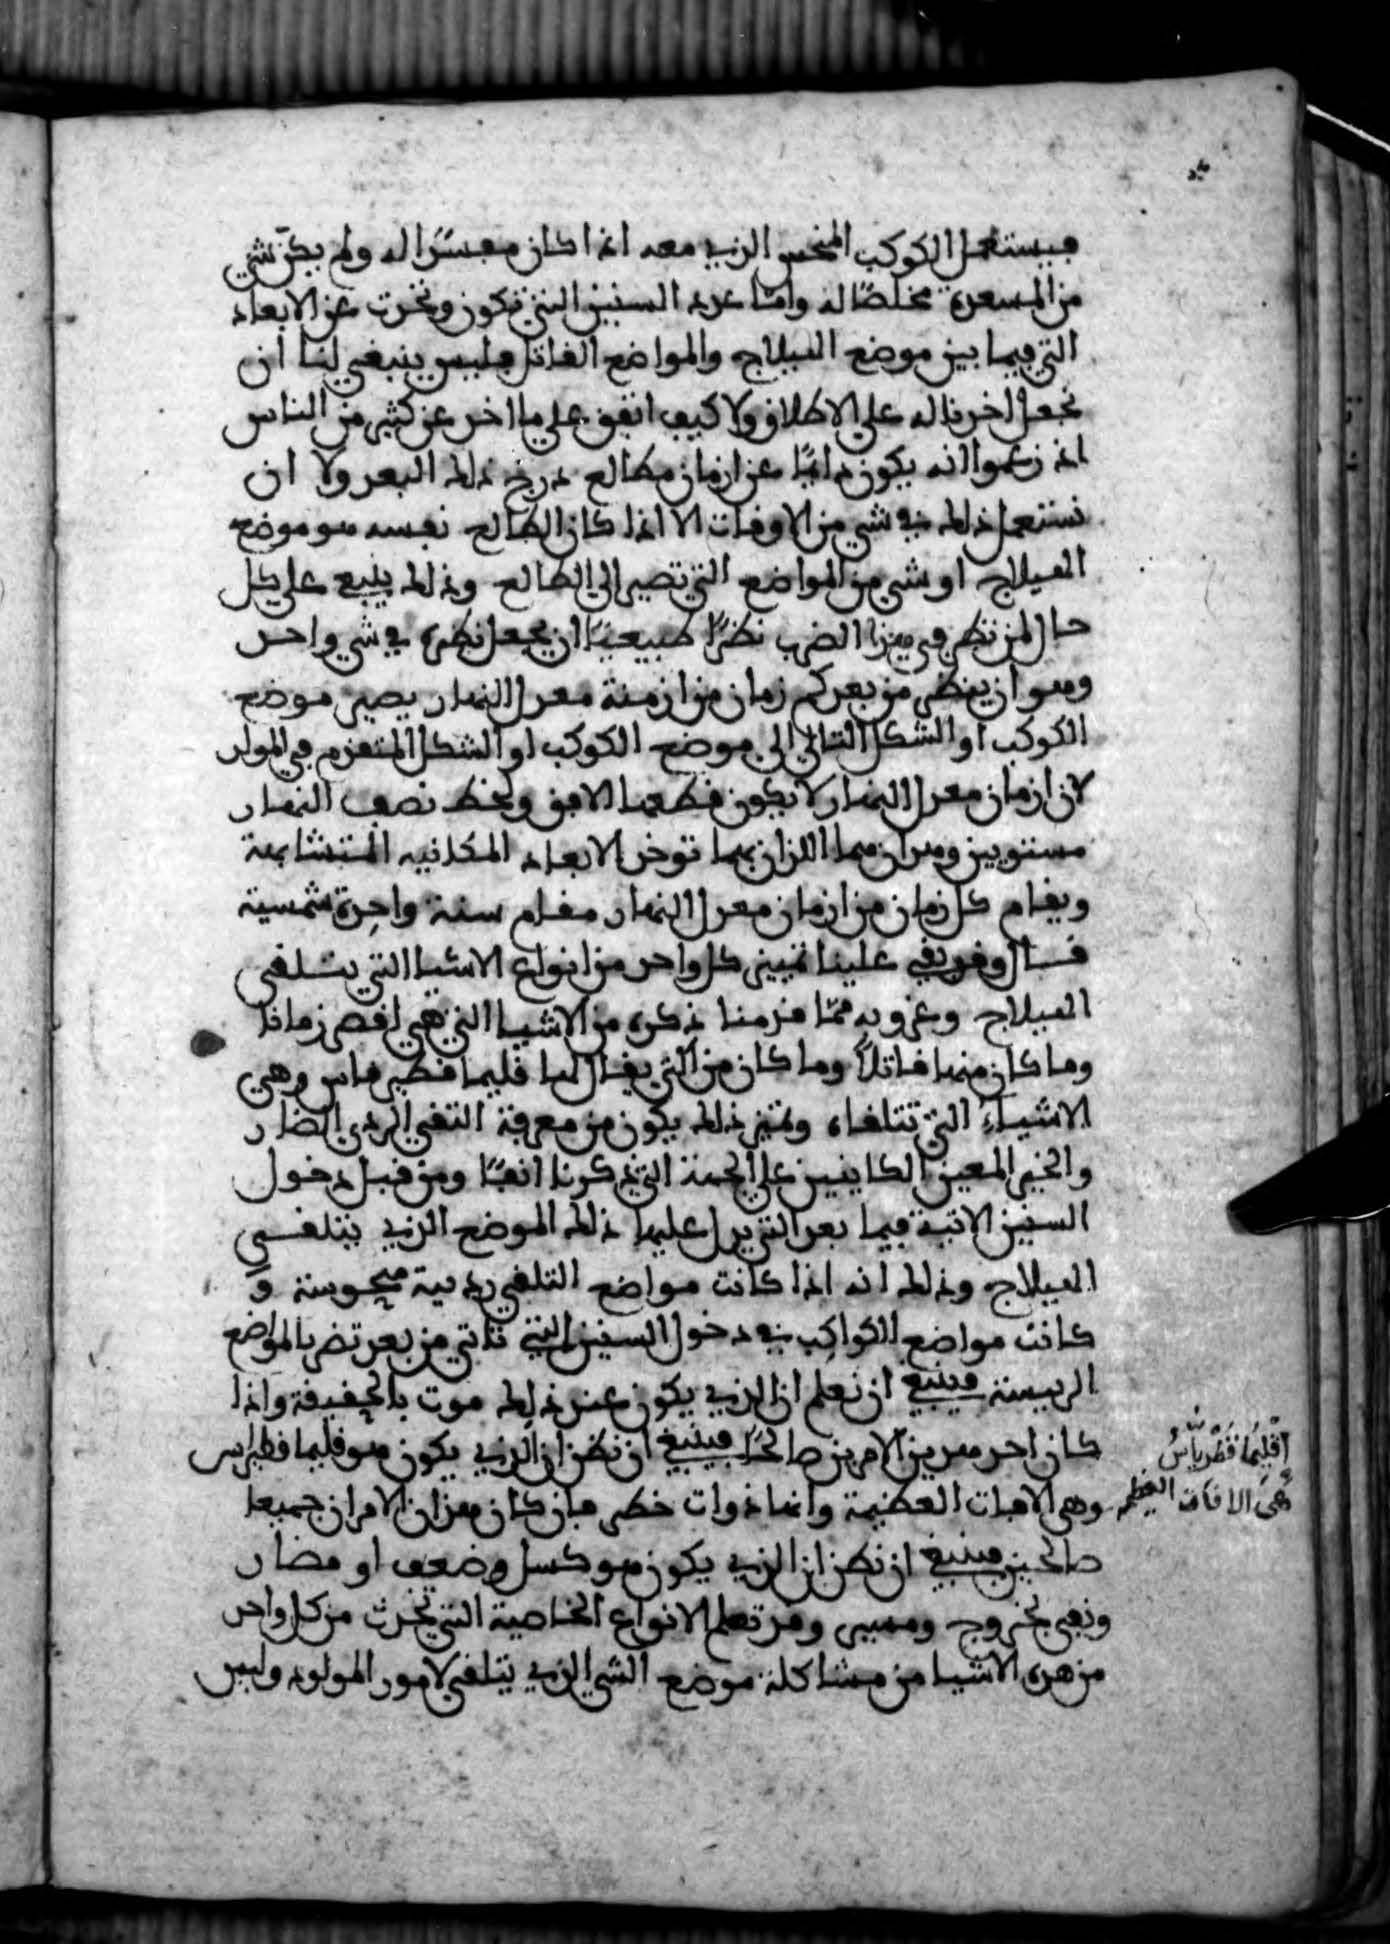 فيستعمل الكوكب المنحس الذي معه اذا كان مفسدًا له ولم يكن شي
من المسعدة مخلصًا له واما عدد السنين التي تكون وتحدث عن الابعاد
التي فيما بين موضع الهيلاج والمواضع القاتلة فليس ينبغي لنا ان
نجعل اخذنا له على الاطلاق ولا كيف اتفق على ما اخذ عن كثير من الناس
اذ زعموا انه يكون دايمًا عن ازمان مطالع درج ذلك البعد ولا ان
نستعمل ذلك في شي من الاوقات الا اذا كان الطالع نفسه هو موضع
الهيلاج او شي من المواضع التي تصير الى الطالع وذلك ينبغ على كل
حال لمن نظر في هذا الضرب نظرًا طبيعيًا ان يجعل نظره في شي واحد
وهو ان ينظر من بعد كم زمان من ازمنة معدل النهار يصير موضع
الكوكب او الشكل التالي الى موضع الكوكب او الشكل المتقدم في المولد
لان ازمان معدل النهار لا يكون قطعها الافق ولخط نصف النهار
مستويين وهذان هما اللذان بهما توخذ الابعاد المكانيه المتشابهة
ويقام كل زمان من ازمان معدل النهار مقام سنة واحدة شمسية
قال وقد بقي علينا تمييز كل واحد من انواع الاشيا التي يتلقى
الهيلاج وغروبه مما قدمنا ذكره من الاشيا التي هي اقصر زمانا
وما كان منها قاتلاً وما كان من التي يقال لها قليما قطيرقاس وهي
الاشياء التي تتلقاه وتميز ذلك يكون من معرفة التقي الردي الضار
والخير المعين الكاينين على الجهة التي ذكرنا انفًا ومن قبل دخول
السنين الاتية فيما بعد التي يدل عليها ذلك الموضع الذي يتلقى
الهيلاج وذلك انه اذا كانت مواضع التلقي رديية منحوسة و
كانت مواضع الكواكب في دخول السنين التي تاتي من بعد تضر بالمواضع
الرييسة فينبغ ان نعلم ان الذي يكون عند ذلك موت بالحقيقة واذا
كان احد هذين الامرين صالحًا فينبغ ان نظن ان الذي يكون هو قليما قطيراس
وهي الافات العظيمة وانها ذوات خطر فان كان هذان الامران جميعا
صالحين فينبغ ان نظن ان الذي يكون هو كسل وضعف او مضار
وقد تعلم الانواع الخاصية التي تحدث من كل واحد
من هذه الاشيا من مشاكلة موضع الشي الذي يتلقى لامور المولود وليس
اقليما قطرياس
هي الافات العظيمه